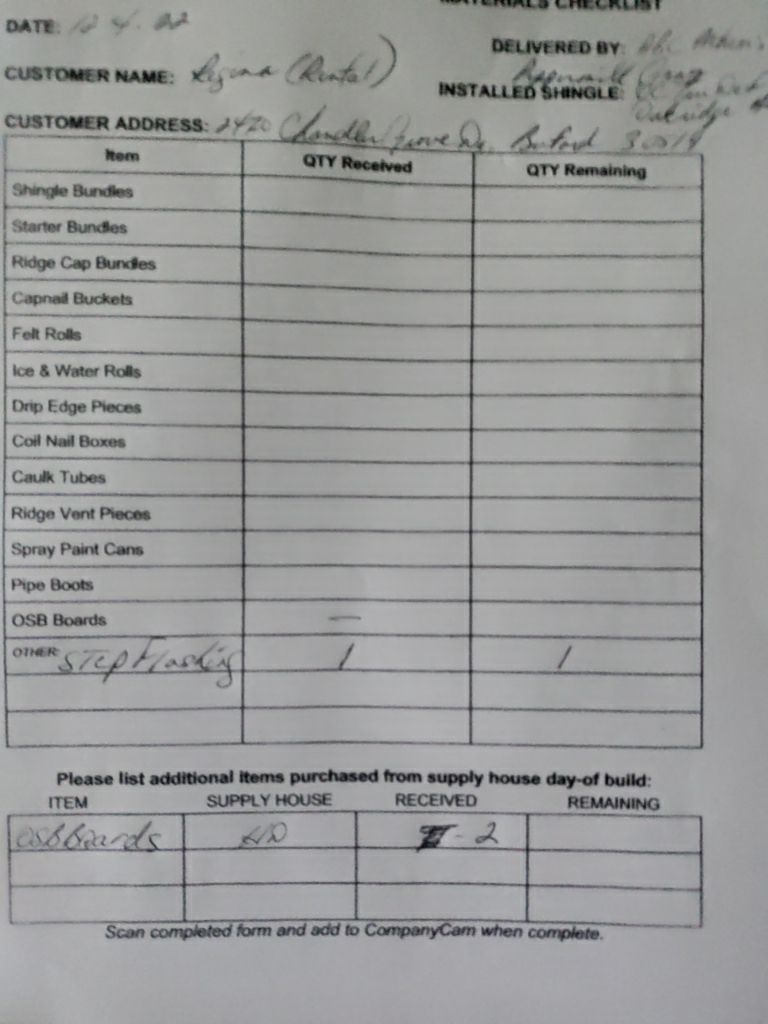 MATERIALS CHECKLIST
DATE: 12 4. 22
DELIVERED BY:
CUSTOMER NAME: Regina (Rental)
INSTALLED SHINGLE: Oakridge
CUSTOMER ADDRESS: 2420 Chandler Grove Dr, Buford 30519
Item QTY Received QTY Remaining
Shingle Bundles
Starter Bundles
Ridge Cap Bundles
Capnail Buckets
Felt Rolls
Ice & Water Rolls
Drip Edge Pieces
Coil Nail Boxes
Caulk Tubes
Ridge Vent Pieces
Spray Paint Cans
Pipe Boots
OSB Boards —
OTHER: Step Flashing 1 1
Please list additional items purchased from supply house day-of build:
ITEM SUPPLY HOUSE RECEIVED REMAINING
OSB Boards HD - 2
Scan completed form and add to CompanyCam when complete.